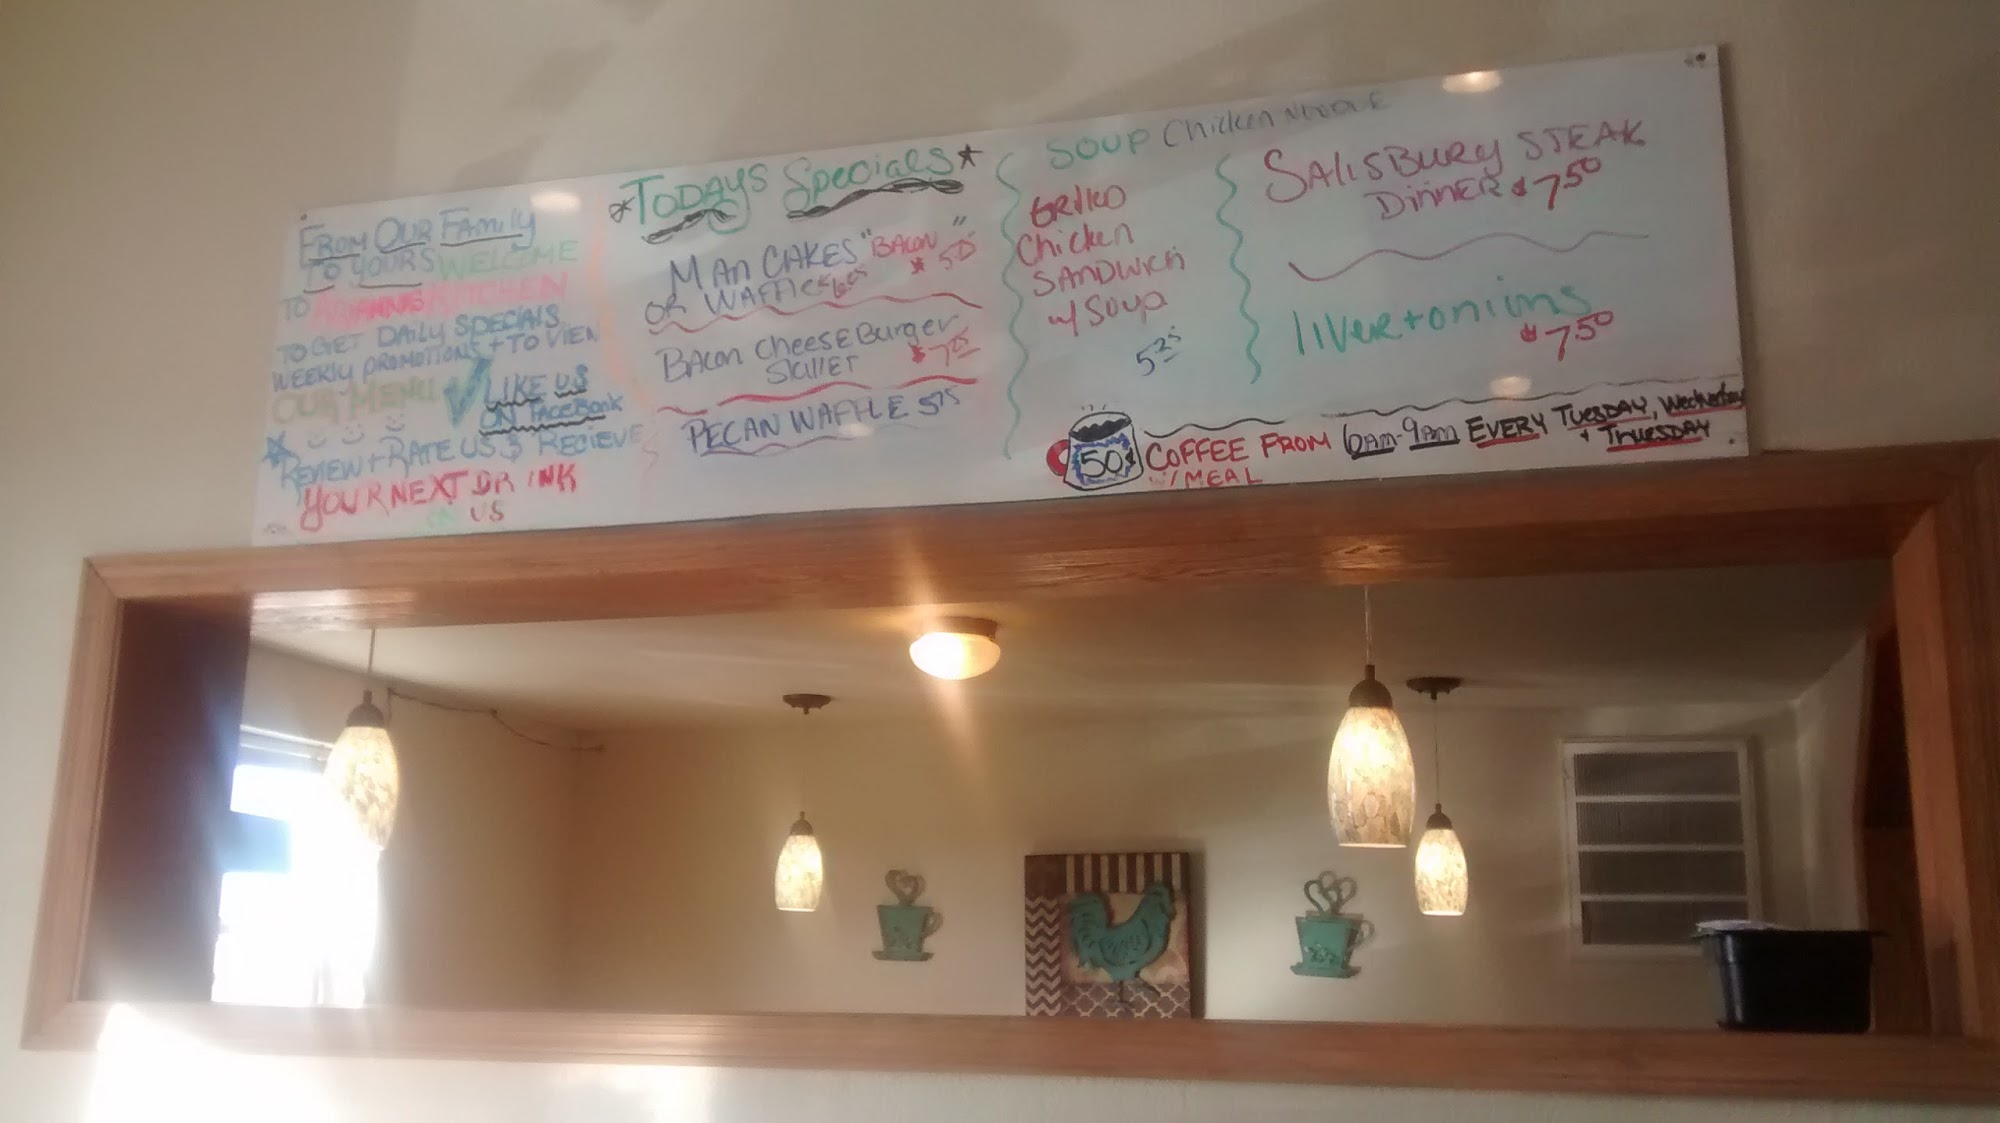 FROM OUR FAMILY
TO YOURS WELCOME
TO KITCHEN
TO GET DAILY SPECIALS
WEEKLY PROMOTIONS + TO VIEW
OUR MENU LIKE US
ON FACEBOOK
REVIEW + RATE US $ RECIEVE
YOUR NEXT DRINK
ON US
*TODAYS SPECIALS*
MAN CAKES "BACON"
OR WAFFLES $5.05
BACON CHEESEBURGER
SKILLET $7.25
PECAN WAFFLE 5.75
SOUP Chicken NOODLE
GRILLED
Chicken
SANDWICH
w/ Soup
5.25
SALISBURY STEAK
DINNER $7.50
liver + onions
$7.50
50¢ COFFEE FROM 6AM-9AM EVERY TUESDAY, Wednesday
W/ MEAL + THURESDAY